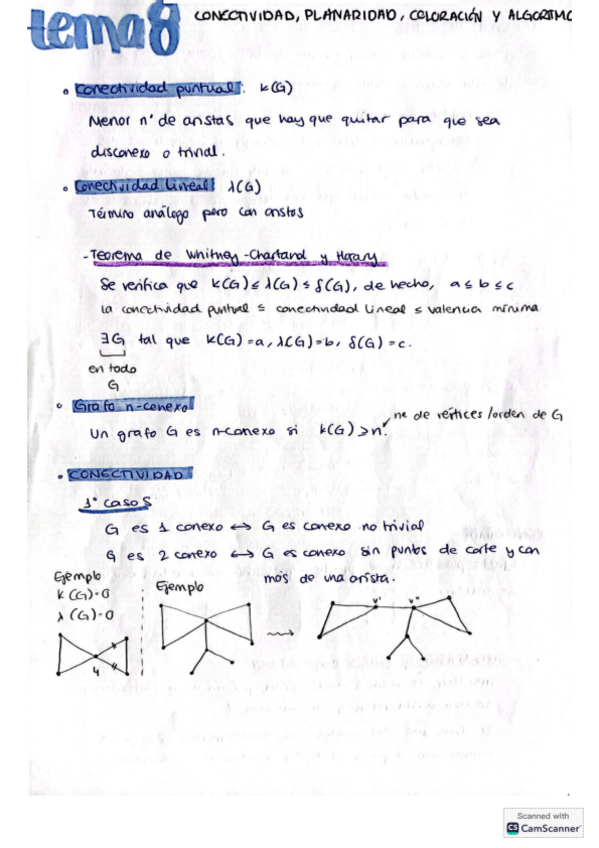 tema 8 CONECTIVIDAD, PLANARIDAD, COLORACIÓN Y ALGORITMO
• Conectividad puntual: K(G)
Menor nº de aristas que hay que quitar para que sea
disconexo o trivial.
• Conectividad lineal: λ(G)
Término análogo pero con aristas
- Teorema de Whitney-Chartrand y Harary
Se verifica que K(G) ≤ λ(G) ≤ δ(G), de hecho, a ≤ b ≤ c
La conectividad puntual ≤ conectividad lineal ≤ valencia mínima
∃G tal que K(G)=a, λ(G)=b, δ(G)=c.
en todo
G
• Grafo n-conexo
nº de vértices/orden de G
Un grafo G es n-conexo si K(G) ≥ n.
• CONECTIVIDAD
1º CASOS
G es 1 conexo ↔ G es conexo no trivial
G es 2 conexo ↔ G es conexo sin puntos de corte y con
más de una arista.
Ejemplo
K(G)=0
λ(G)=0
Ejemplo
v' v''
4
Scanned with
CS CamScanner